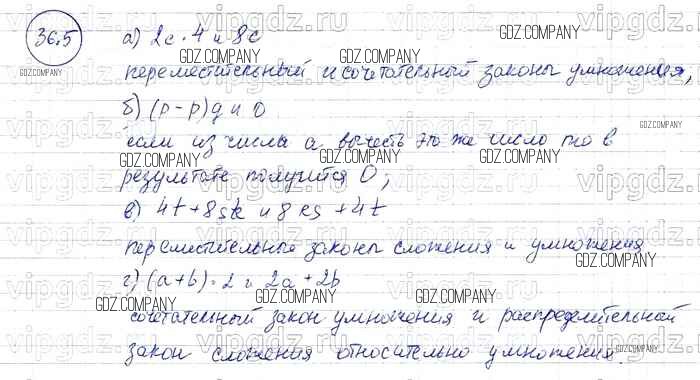 36.5
а) 2c · 4 и 8c
переместительный и сочетательный законы умножения;
б) (p - p)q и 0
если из числа a вычесть это же число то в
результате получится 0;
в) 4t + 8sk и 8ks + 4t
переместительные законы сложения и умножения
г) (a + b) · 2 и 2a + 2b
сочетательный закон умножения и распределительной
закон сложения относительно умножения.
GDZ.COMPANY
vipgdz.ru